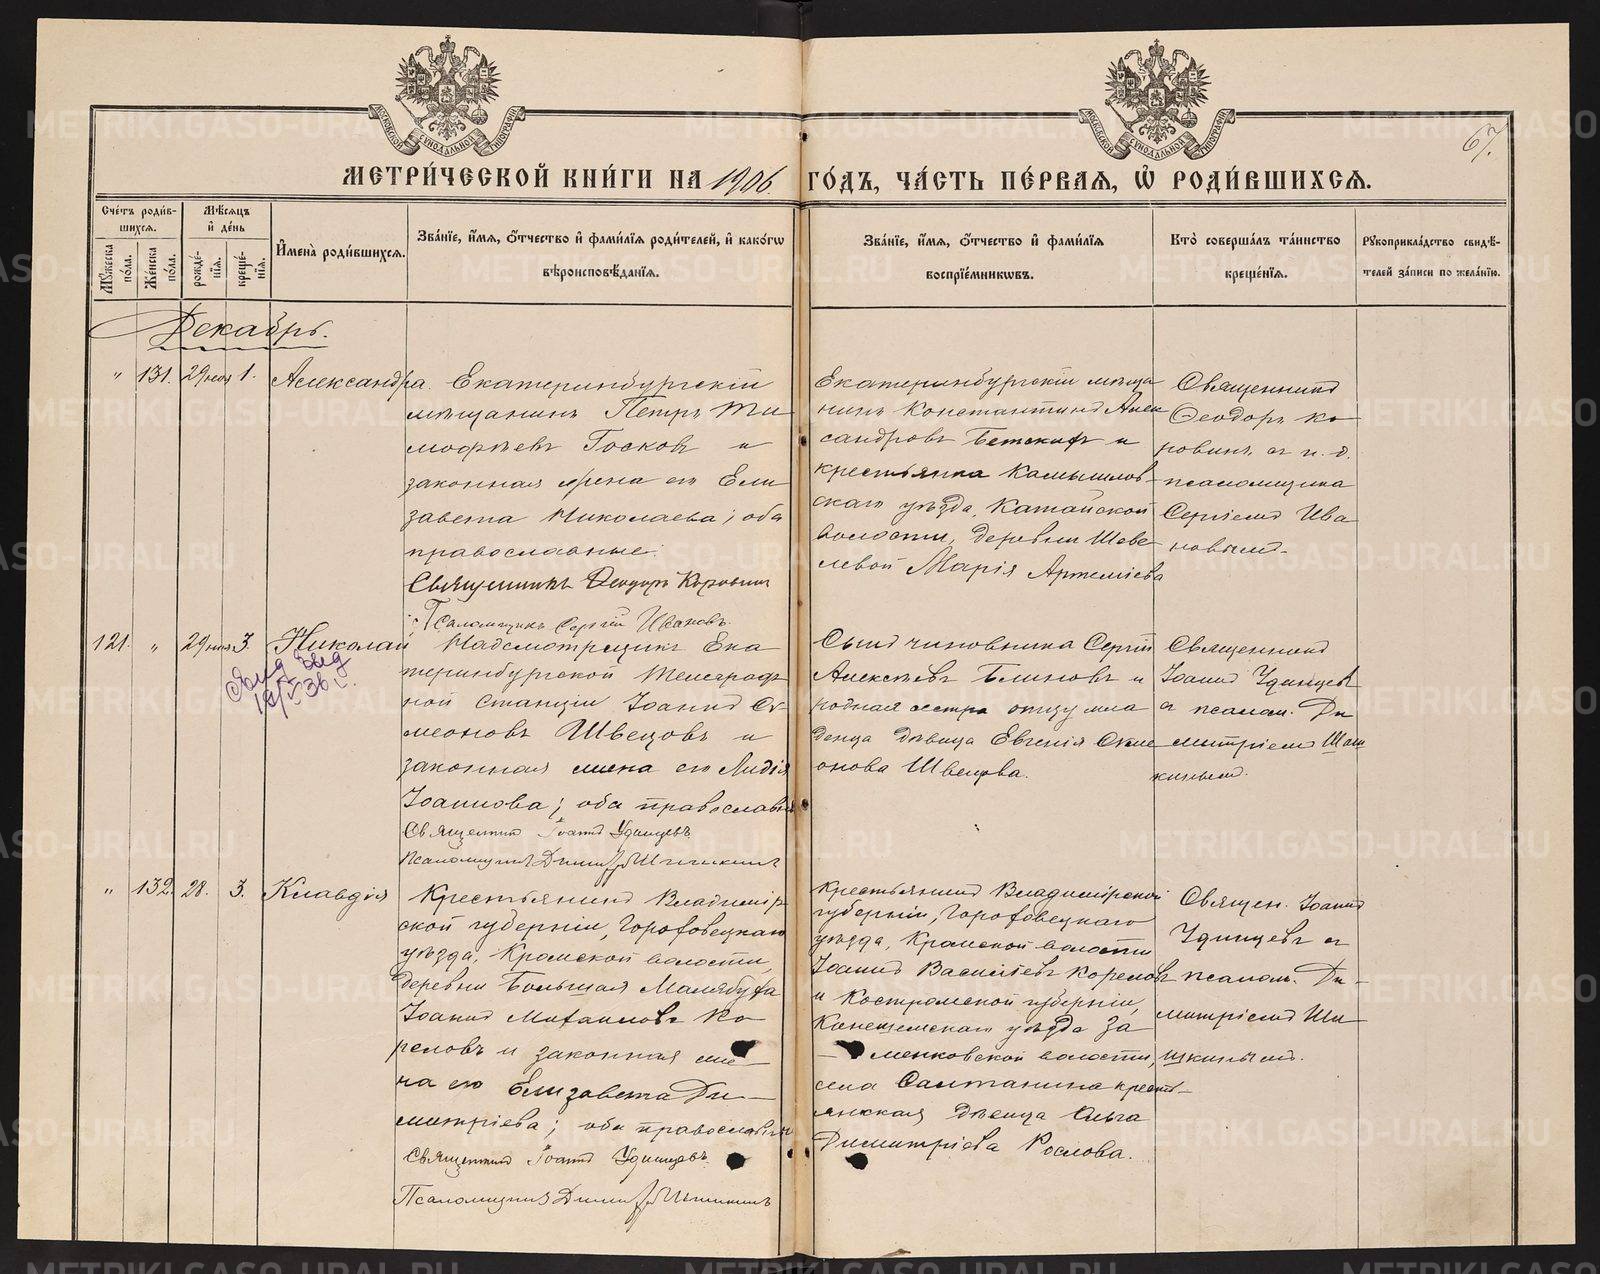 МЕТРИ́ЧЕСКОЙ КНИ́ГИ НА 1906 ГО́ДЪ, ЧА́СТЬ ПЕ́РВАѦ, Ѡ҆ РОДИ́ВШИХСѦ.
67.
Сче́тъ роди́в-
шихсѧ.
Мꙋ́жеска по́ла.
Же́нска по́ла.
Мѣ́сѧцъ
и҆ де́нь
рожде́-
нїѧ.
креще́-
нїѧ.
И҆мена̀ роди́вшихсѧ.
Зва́нїе, и҆́мѧ, ѻ҆́тчество и҆ фами́лїѧ роди́телей, и҆ како́гѡ
вѣроисповѣ́данїѧ.
Зва́нїе, и҆́мѧ, ѻ҆́тчество и҆ фами́лїѧ
воспрїе́мникѡвъ.
Кто̀ соверша́лъ та́инство
креще́нїѧ.
Рꙋкоприкла́дство свидѣ́-
телей за́писи по жела́нїю.
Декабрь.
" 131. 29 ноя 1. Александра.
Екатеринбургскій
мѣщанинъ Петръ Ти
мофѣевъ Госковъ и
законная жена его Ели
завета Николаева; оба
православные.
Священникъ Ѳеодоръ Коровинъ
Псаломщикъ Сергій Ивановъ.
Екатеринбургскій мѣща
нинъ Константинъ Алек
сандровъ и
крестьянка Камышлов-
скаго уѣзда, Катайской
волости, деревни Шеве
левой Марія Артеміева
Священникъ
Ѳеодоръ Ко
ровинъ съ и. д.
псаломщика
Сергіемъ Ива
новымъ.
121. " 29 ноя 3. Николай
19/X 36 г.
Надсмотрщикъ Ека
теринбургской Телеграф
ной Станціи Іоаннъ Си
меоновъ Швецовъ и
законная жена его Лидія
Іоаннова; оба православн
Священникъ Іоаннъ Удинцевъ
Псаломщикъ Димитрій Шишкинъ
Сынъ чиновника Сергій
Алексѣевъ Блиновъ и
родная сестра отцу мла
денца дѣвица Евгенія Симе
онова Швецова.
Священникъ
Іоаннъ Удинцевъ
съ псалом. Ди
митріемъ Шиш
кинымъ.
" 132. 28. 3. Клавдія
Крестьянинъ Владимір
ской губерніи, Гороховецкаго
уѣзда, Кромской волости,
деревни Большая
Іоаннъ Михаиловъ Ко
реловъ и законная же
на его Елизавета Ди
митріева; оба православн
Священникъ Іоаннъ Удинцевъ.
Псаломщикъ Димитрій Шишкинъ
Крестьянинъ Владимірской
губерніи, Гороховецкаго
уѣзда, Кромской волости
Іоаннъ Василіевъ Кореловъ
и Костромской губерніи,
Кинешемскаго уѣзда За
менковской волости,
села кресть-
янская дѣвица Ольга
Димитріева Рослова.
Священ. Іоаннъ
Удинцевъ съ
псалом. Ди-
митріемъ Ши
шкинымъ.
METRIKI.GASO-URAL.RU